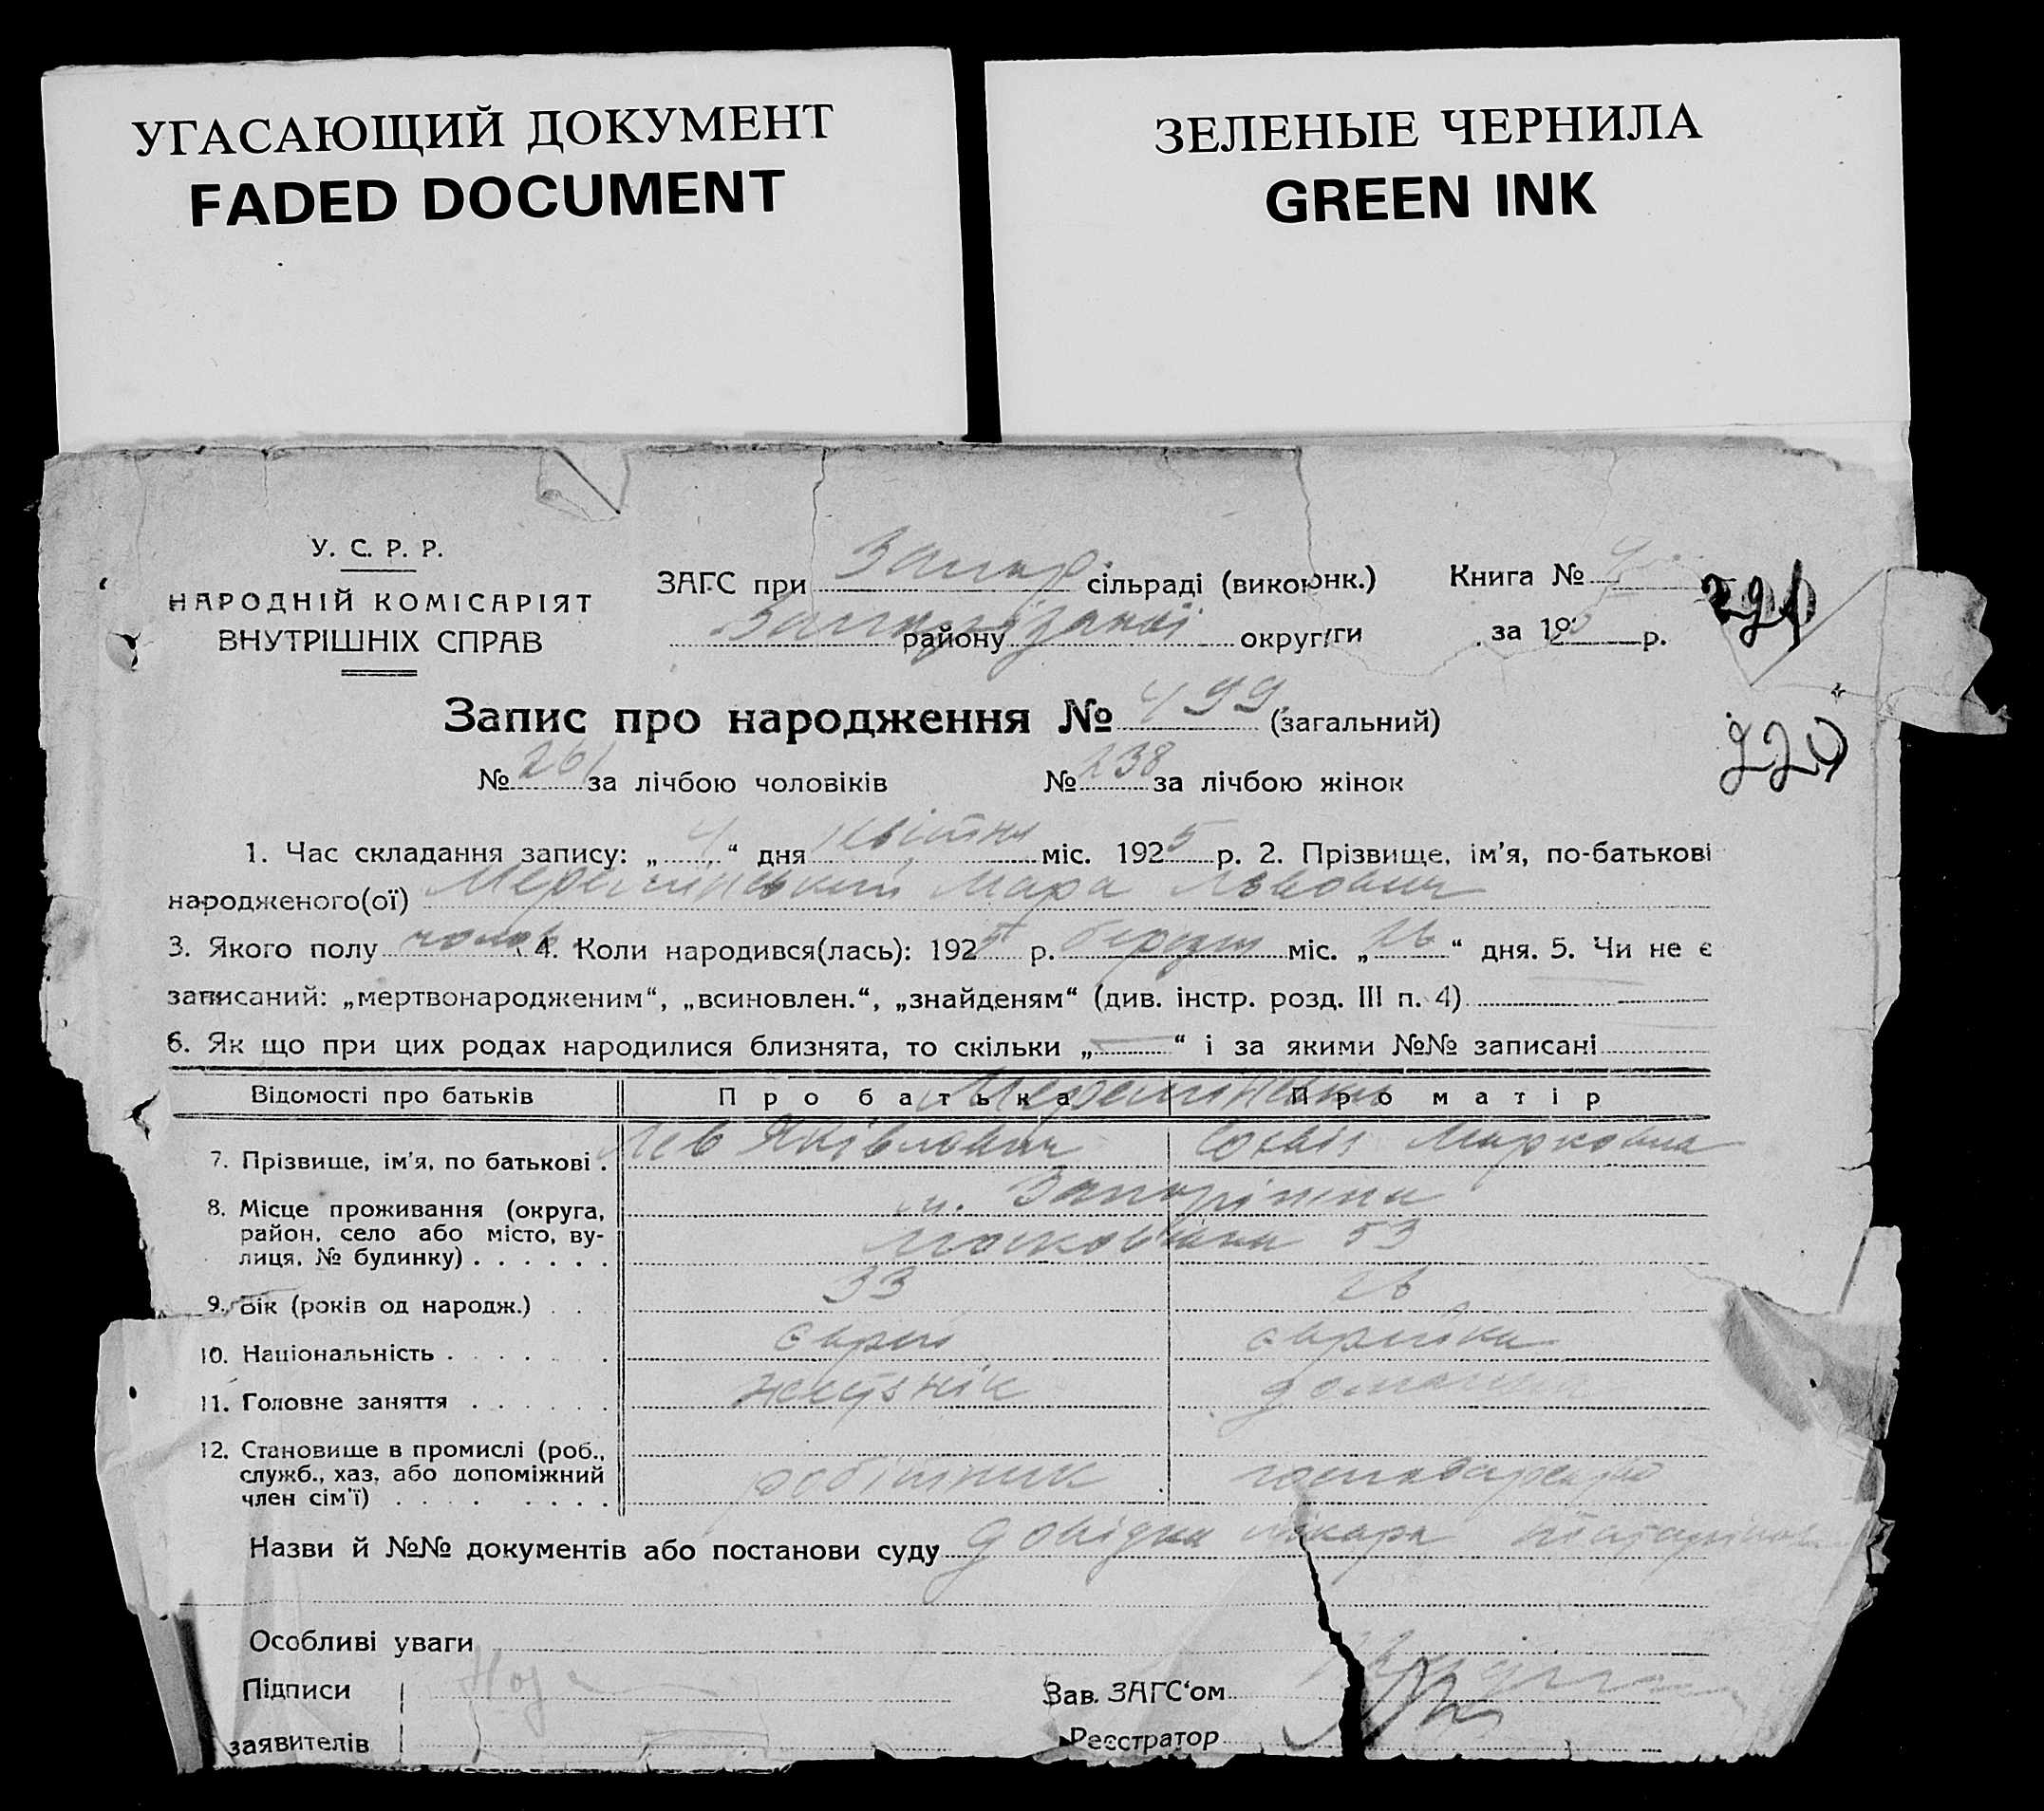 УГАСАЮЩИЙ ДОКУМЕНТ
FADED DOCUMENT
ЗЕЛЕНЫЕ ЧЕРНИЛА
GREEN INK
У. С. Р. Р.
НАРОДНІЙ КОМІСАРІЯТ
ВНУТРІШНІХ СПРАВ
ЗАГС при Запор. сільраді (виконк.)
району округи
Книга №
за 192 р.
220
Запис про народження № 499 (загальний)
№ 261 за лічбою чоловіків № 238 за лічбою жінок
1. Час складання запису: „ 4 “ дня квітня міс. 1925 р. 2. Прізвище, ім’я, по-батькові
народженого(ої) Мара Львович
3. Якого полу чолов. 4. Коли народився(лась): 192 р. березня міс. „ 26 “ дня. 5. Чи не є
записаний: „мертвонародженим“, „всиновлен.“, „знайденям“ (див. інстр. розд. III п. 4)
6. Як що при цих родах народилися близнята, то скільки „ — “ і за якими №№ записані
Відомості про батьків Про батька Про матір
7. Прізвище, ім’я, по батькові . Лев Яківлович Софія Марковна
8. Місце проживання (округа, район, село або місто, вулиця, № будинку) . . . . . . м. Запоріжжя
53
9. Вік (років од народж.) . . 33 26
10. Національність . . . . . . . єврей єврейка
11. Головне заняття . . . . . . домашнє
12. Становище в промислі (роб., служб., хаз. або допоміжний член сім’ї) . . . . . . . . робітник
Назви й №№ документів або постанови суду довідка лікаря
Особливі уваги
Підписи
заявителів
Зав. ЗАГС‘ом
Реєстратор